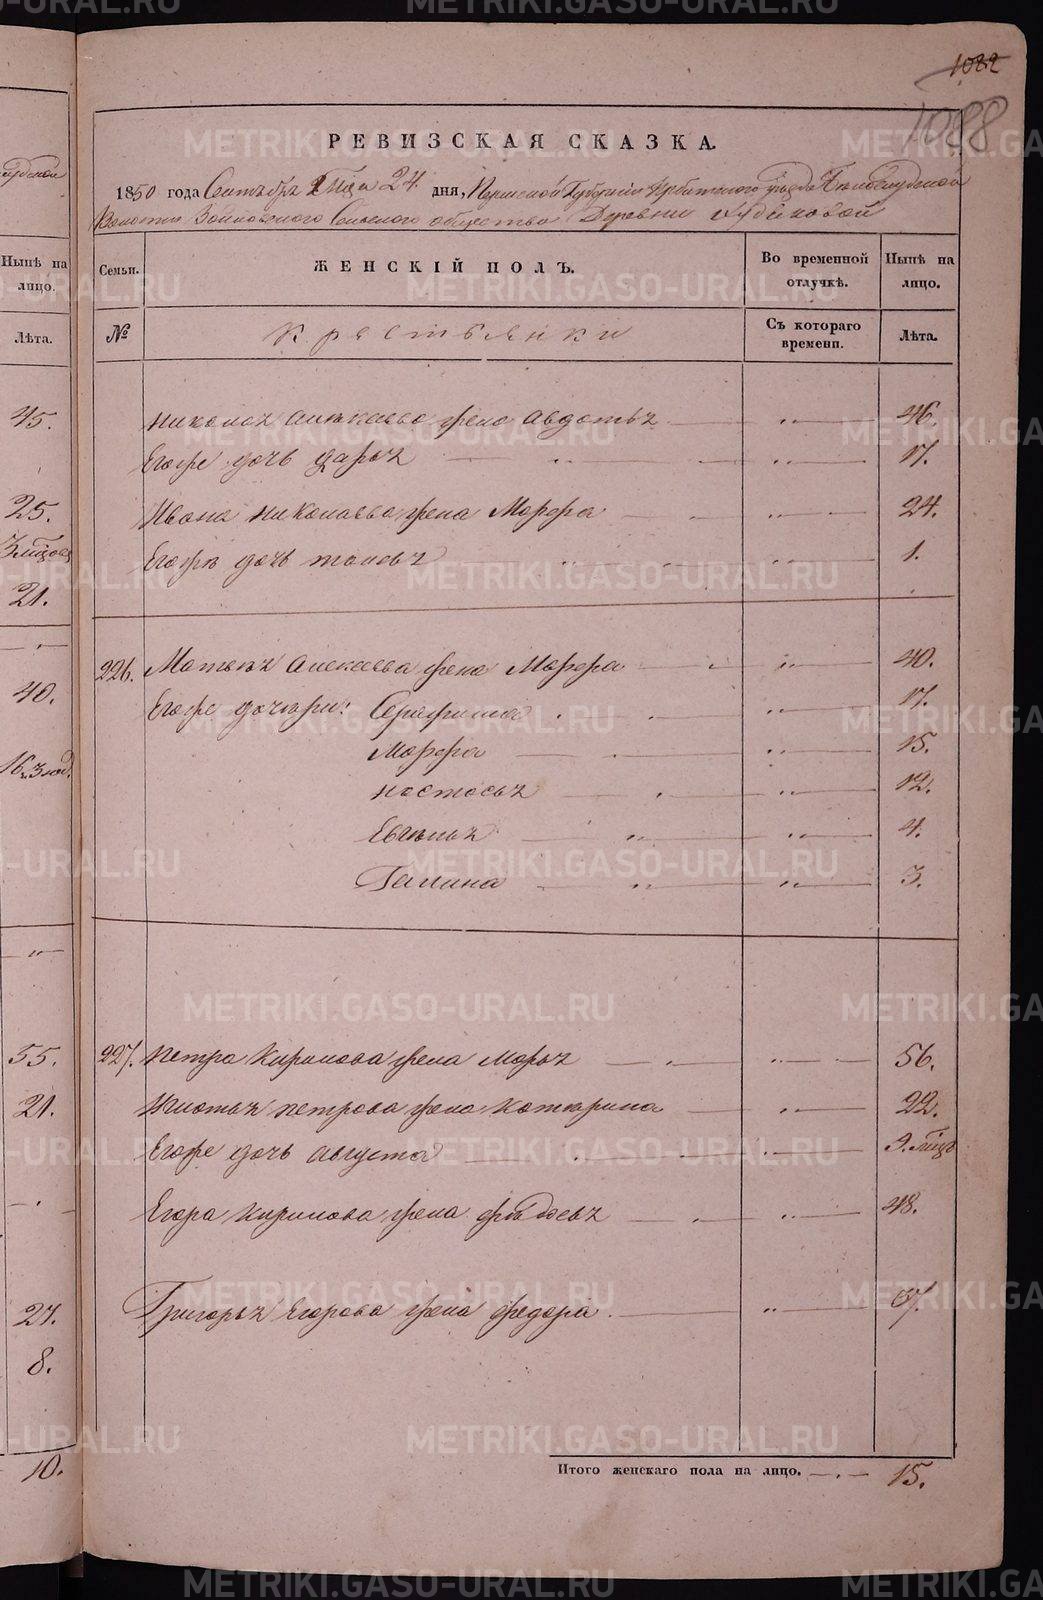 1022
1088
РЕВИЗСКАЯ СКАЗКА.
1850 года Сентября Мца 24 дня, Пермской Губернии Ирбитского уезда Белослудской
Волости Зайковского Сельского общества Деревни
Семьи. ЖЕНСКІЙ ПОЛЪ. Во временной отлучкѣ. Нынѣ на лицо.
№ Крестьянки Съ котораго времени. Лѣта.
Николая Алексѣева жена Авдотья 46.
Его же дочь Дарья 17.
Ивана Николаева жена Марфа 24.
Егоже дочь 1.
226. Матвѣя Алексеева жена Марфа 40.
Его же дочери: Серафима 17.
Марфа 15.
Настасья 12.
Евгѣнья 4.
Галина 3.
227. Петра Кирилова жена Марья 56.
Петрова жена Катерина 22.
Егоже дочь Августа 9. мцъ
Егора Кирилова жена Федосья 48.
Григорья Егорова жена Федора 37.
Итого женскаго пола на лицо. 15.
Нынѣ на лицо.
Лѣта.
45.
25.
3 мцов
21.
40.
16 3 год.
55.
21.
27.
8.
10.
METRIKI.GASO-URAL.RU